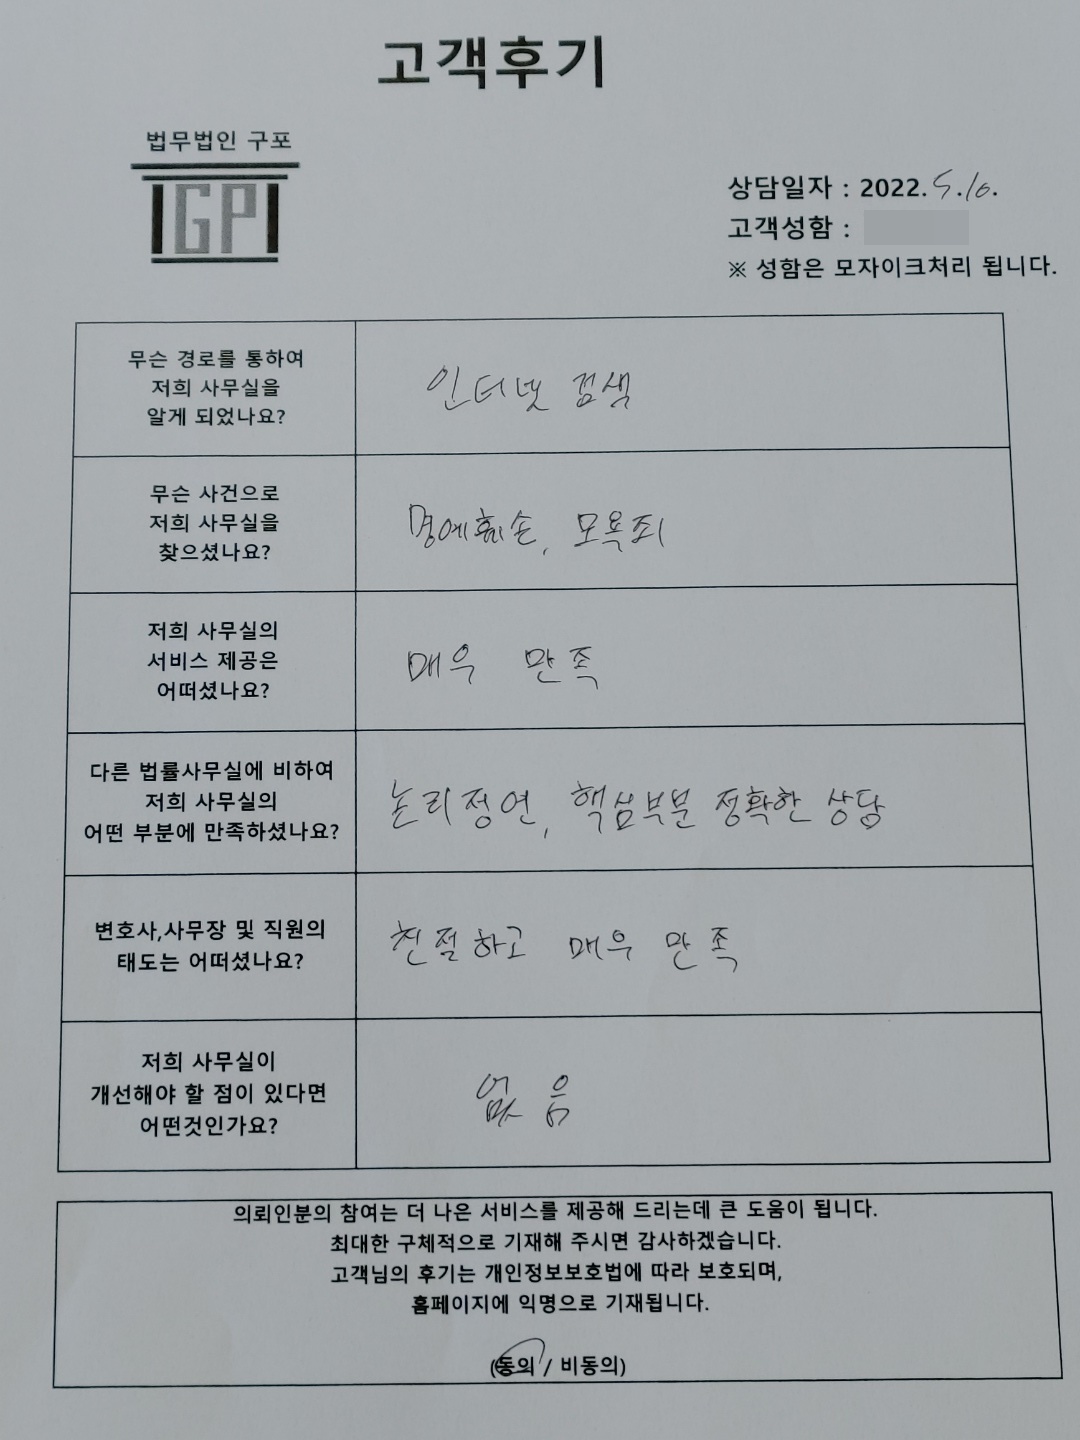 고객후기
법무법인 구포
IGPI
상담일자 : 2022. 5.10.
고객성함 :
※ 성함은 모자이크처리 됩니다.
무슨 경로를 통하여
저희 사무실을
알게 되었나요?
인터넷 검색
무슨 사건으로
저희 사무실을
찾으셨나요?
명예훼손, 모욕죄
저희 사무실의
서비스 제공은
어떠셨나요?
매우 만족
다른 법률사무실에 비하여
저희 사무실의
어떤 부분에 만족하셨나요?
논리정연, 핵심부분 정확한 상담
변호사,사무장 및 직원의
태도는 어떠셨나요?
친절하고 매우 만족
저희 사무실이
개선해야 할 점이 있다면
어떤것인가요?
없음
의뢰인분의 참여는 더 나은 서비스를 제공해 드리는데 큰 도움이 됩니다.
최대한 구체적으로 기재해 주시면 감사하겠습니다.
고객님의 후기는 개인정보보호법에 따라 보호되며,
홈페이지에 익명으로 기재됩니다.
(동의 / 비동의)